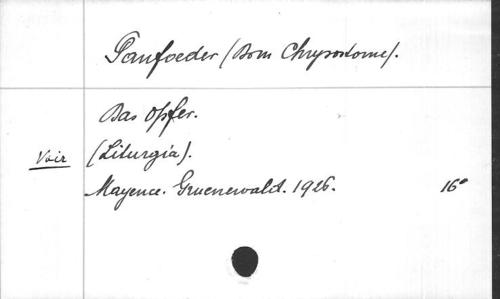 Panfoeder (Dom Chrysostome).
Das Opfer.
Voir (Liturgia).
Mayence. Gruenewald. 1926. 16°